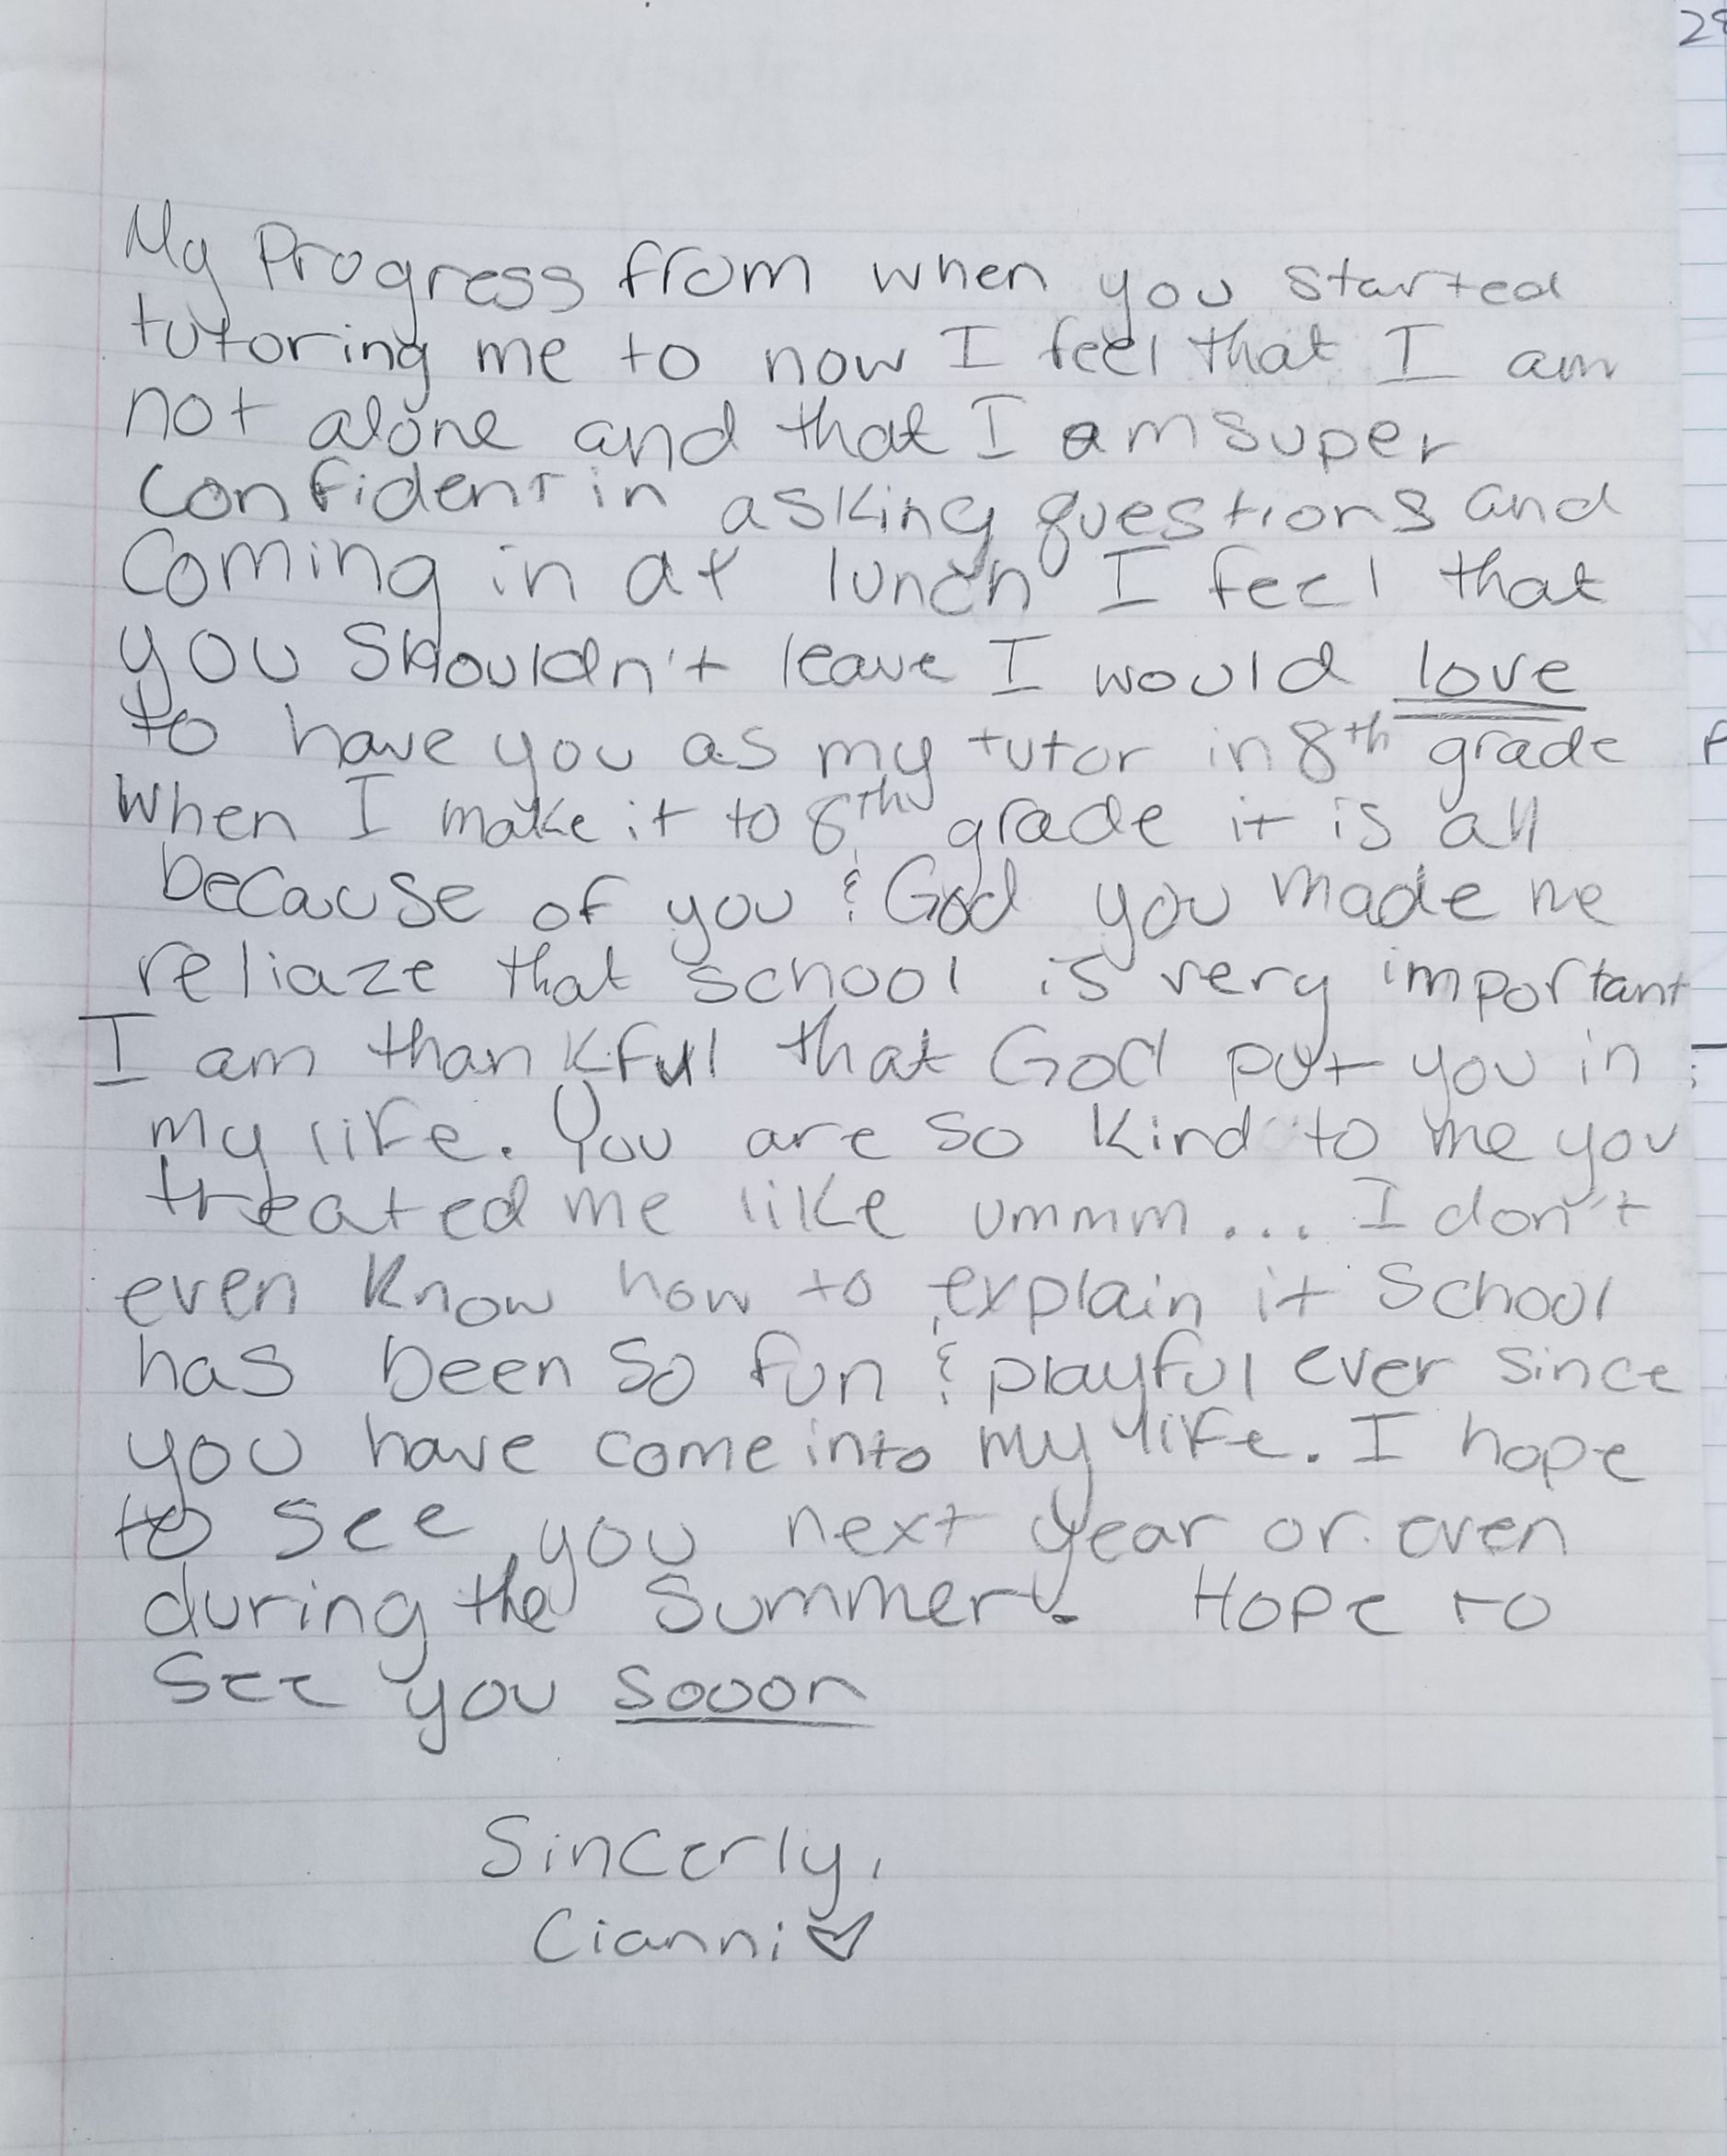 28
My Progress from when you started
tutoring me to now I feel that I am
not alone and that I am super
confident in asking questions and
Coming in at lunch I feel that
you shouldn't leave I would love
to have you as my tutor in 8th grade
When I make it to 8th grade it is all
because of you & God you made me
reliaze that school is very important
I am thankful that God put you in
my life. You are so kind to me you
treated me like ummm... I don't
even know how to explain it School
has been so fun & playful ever since
you have come into my life. I hope
to see you next year or even
during the summer. Hope to
see you sooon
Sincerly,
Cianni♡